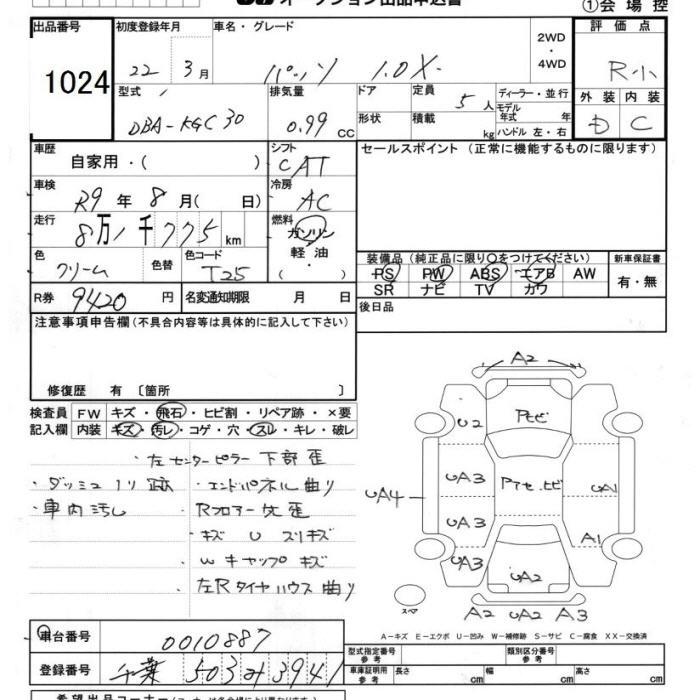 オークション出品申込書
①会場控
出品番号 初度登録年月 車名・グレード 2WD・4WD 評価点
1024 22年3月 パッソ 1.0X R小
型式 排気量 ドア 定員 ディーラー・並行 外装 内装
DBA-KGC30 0.99CC 5人 モデル年式 年 D C
形状 積載 kg ハンドル 左・右
車歴 シフト セールスポイント(正常に機能するものに限ります)
自家用・( ) CAT
車検 冷房
R9年8月( 日) AC
走行 燃料
8万1千775km ガソリン
軽油
・( )
色 色替 色コード
クリーム T25
装備品(純正品に限り○をつけてください) 新車保証書
PS PW ABS エアB AW 有・無
SR ナビ TV カワ
R券 9420円 名変通知期限 月 日 後日品
注意事項申告欄(不具合内容等は具体的に記入して下さい)
修復歴 有〔箇所 〕
検査員 FW キズ・飛石・ヒビ割・リペア跡・×要
記入欄 内装 キズ・汚レ・コゲ・穴・スレ・キレ・破レ
・左センターピラー下部歪
・ダッシュノリ跡 ・エンドパネル曲り
・車内汚レ ・Rフロアー先歪
・キズ U スリキズ
・Wキャップキズ
・左Rタイヤハウス曲り
A2
U2 Pセビ
UA3
UA4 UA1
UA3
A1
UA3 UA2
スペア A2 UA2 A3
A-キズ E-エクボ U-凹み W-補修跡 S-サビ C-腐食 XX-交換済
車台番号 0010887
型式指定番号 参考 類別区分番号 参考
登録番号 千葉 503 み 3941
車庫証明用 参考 長さ cm 幅 cm 高さ cm
希望出品コーナー